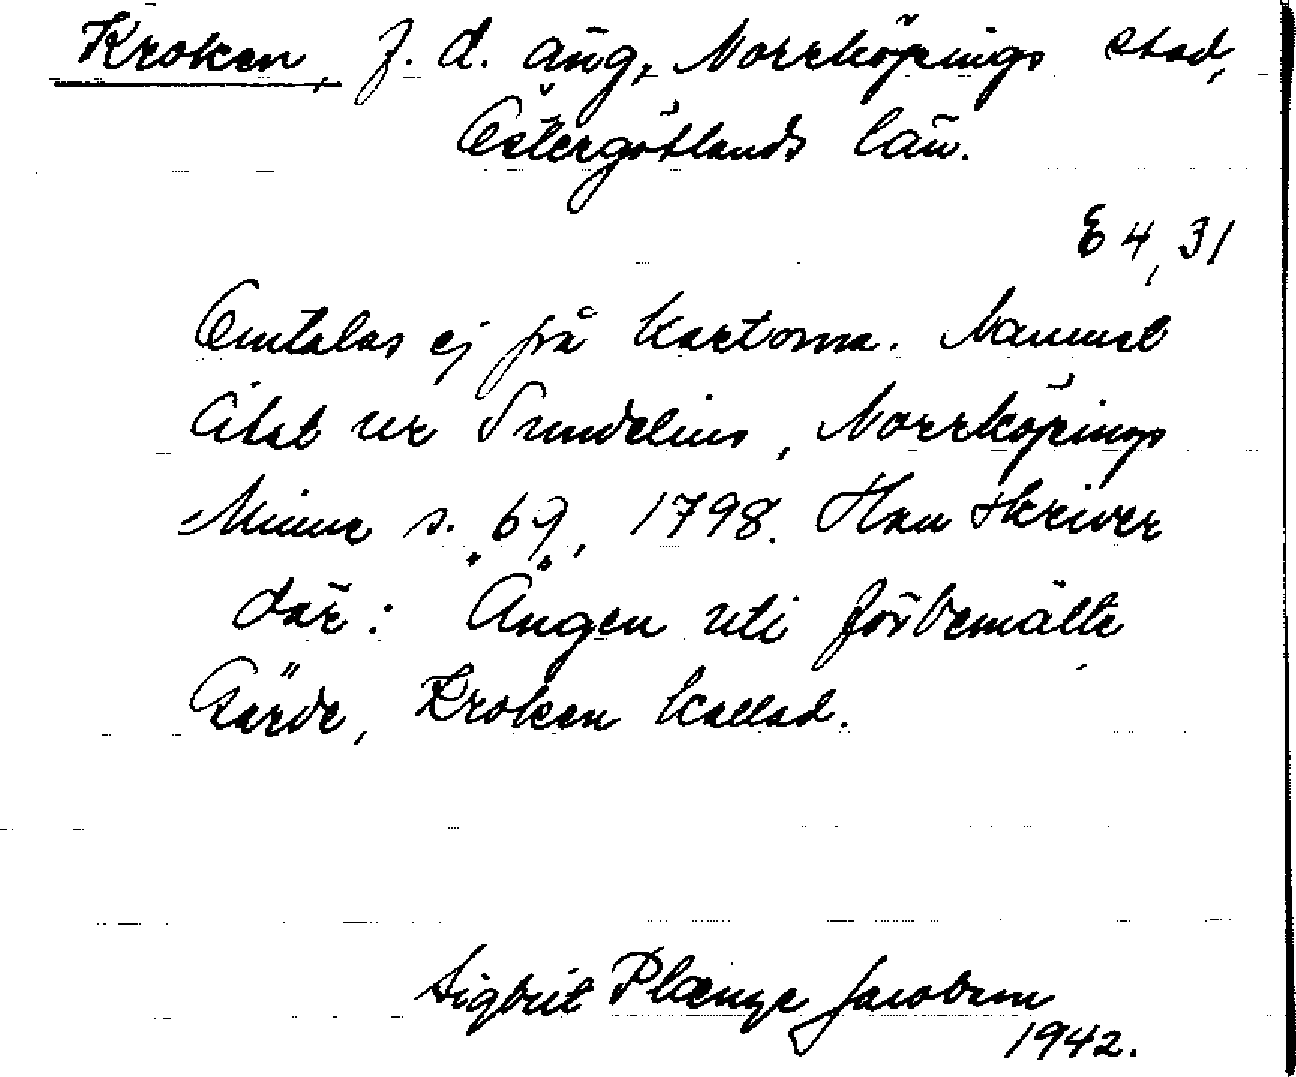 Kroken, f. d. äng, Norrköpings stad,
Östergötlands län.
E 4, 31
Omtalas ej på kartorna. Namnet
citat ur Sundelius, Norrköpings
Minne s. 69, 1798. Han skriver
där: Ängen uti förbemälte
Gärde, Kroken kallad.
Sigbrit Plænge Jacobson
1942.